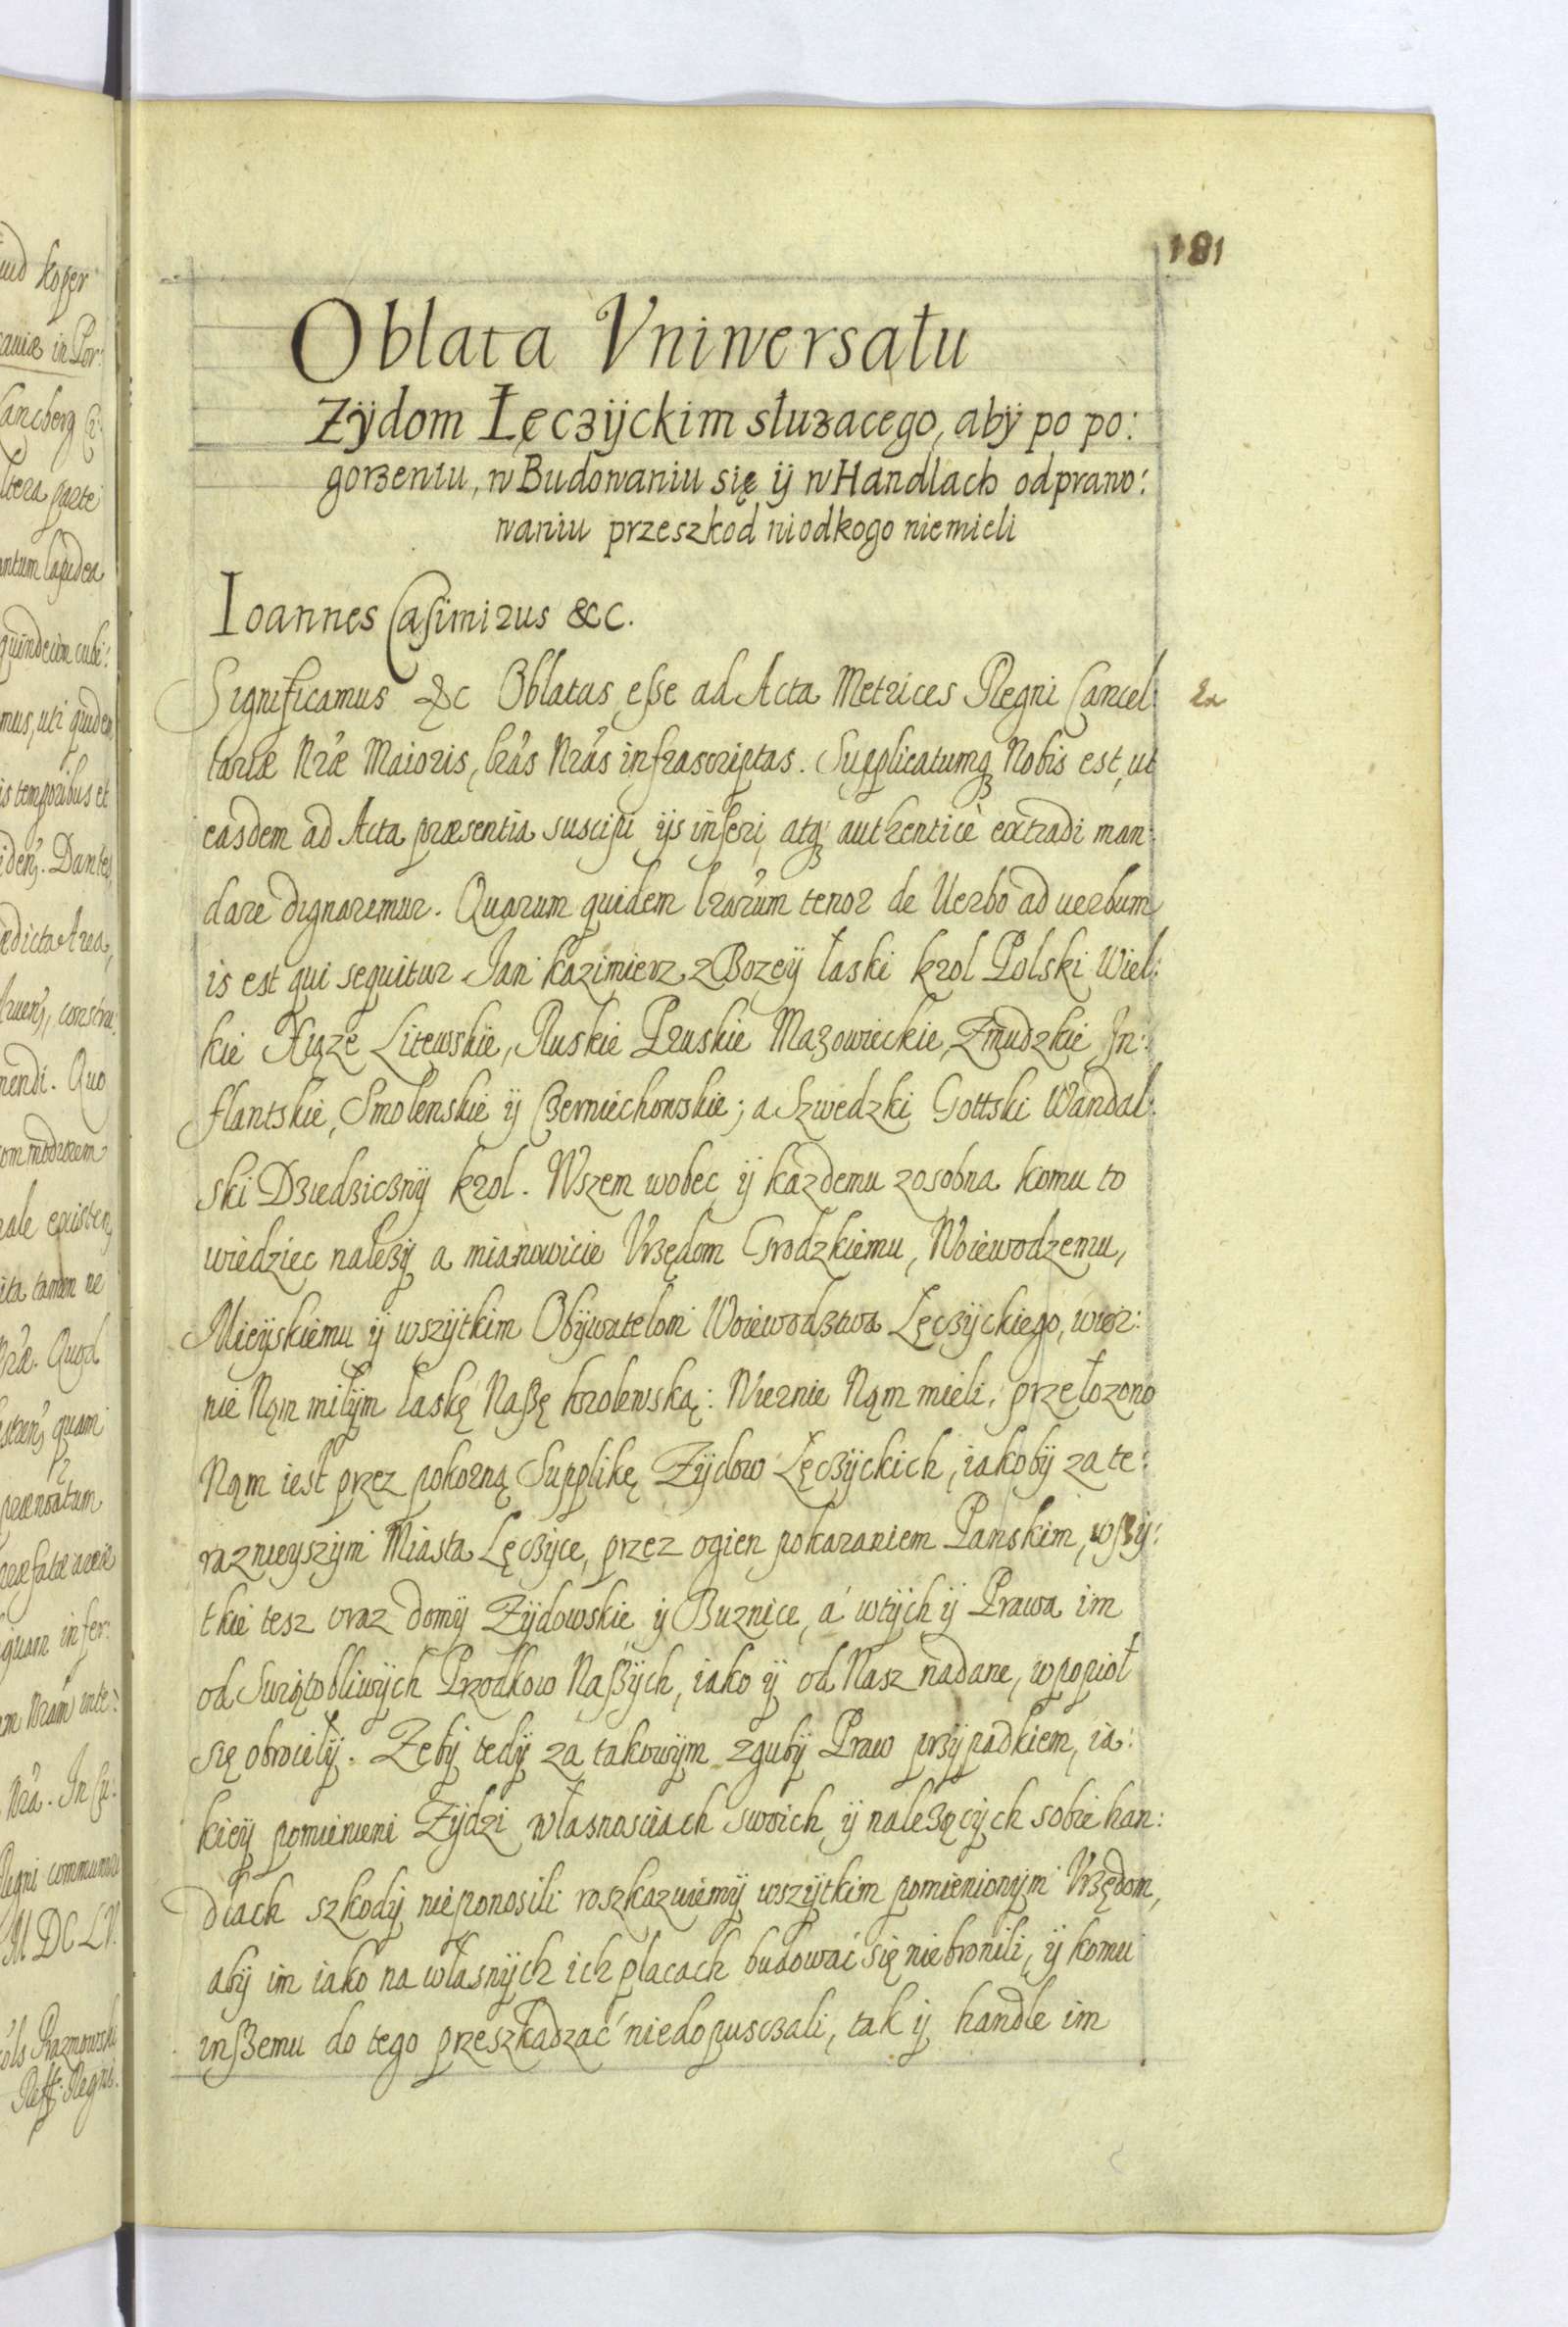 181
Oblata Vniwersału
Zÿdom Łęczÿckim słuzacego, abÿ po po:
gorzeniu, w Budowaniu się ÿ w Handlach odprawo:
waniu przeszkod niodkogo niemieli
Ioannes Casimirus &c.
Significamus &c Oblatas esse ad Acta Metrices Regni Cancel:
lariæ Nræ Maioris, lras Nras infrascriptas. Supplicatumq Nobis est, ut
easdem ad Acta præsentia suscipi ijs inseri, atq authenticè extradi man:
dare dignaremur. Quarum quidem lrarum tenor de Uerbo ad uerbum
is est qui sequitur Jan Kazimierz z Bozeÿ łaski krol Polski Wiel:
kie Xiąze Litewskie, Ruskie Pruskie Mazowieckie, Zmudzkie Jn:
flantskie, Smolenskie ÿ Czerniechowskie; a Szwedzki Gottski Wandal:
ski Dziedzicznÿ krol. Wszem wobec ÿ kazdemu zosobna komu to
wiedziec nalezÿ a mianowicie Vrzędom Grodzkiemu, Woiewodzemu,
Mieÿskiemu ÿ wszÿtkim Obÿwatelom Woiewodztwa Łęczÿckiego, wier:
nie Nąm miłÿm łaskę Naszę krolewską: Wiernie Nąm mieli, przełozono
Nąm iest przez pokorną Supplikę Zÿdow Łęczÿckich, iakobÿ za te:
raznieÿszÿm Miasta Łęczÿce, przez ogien pokaraniem Panskim, wszÿ:
tkie tesz oraz domÿ Zÿdowskie ÿ Buznice, á wtÿch ÿ Prawa im
od Swiątobliwÿch Przodkow Naszÿch, iako ÿ od Nasz nadane, wpopioł
się obrociłÿ. Zebÿ tedÿ za takowÿm zgubÿ Praw przÿpadkiem, ia:
kieÿ pomienieni Zÿdzi własnosciach swoich ÿ nalezącÿch sobie han:
dlach szkodÿ nieponosili roszkazuiemÿ wszÿtkim pomienionÿm Vrzędom,
abÿ im iako na własnÿch ich placach budować się niebronili, ÿ komu
inszemu do tego przeszkadzać niedopuszczali, tak ÿ handle im